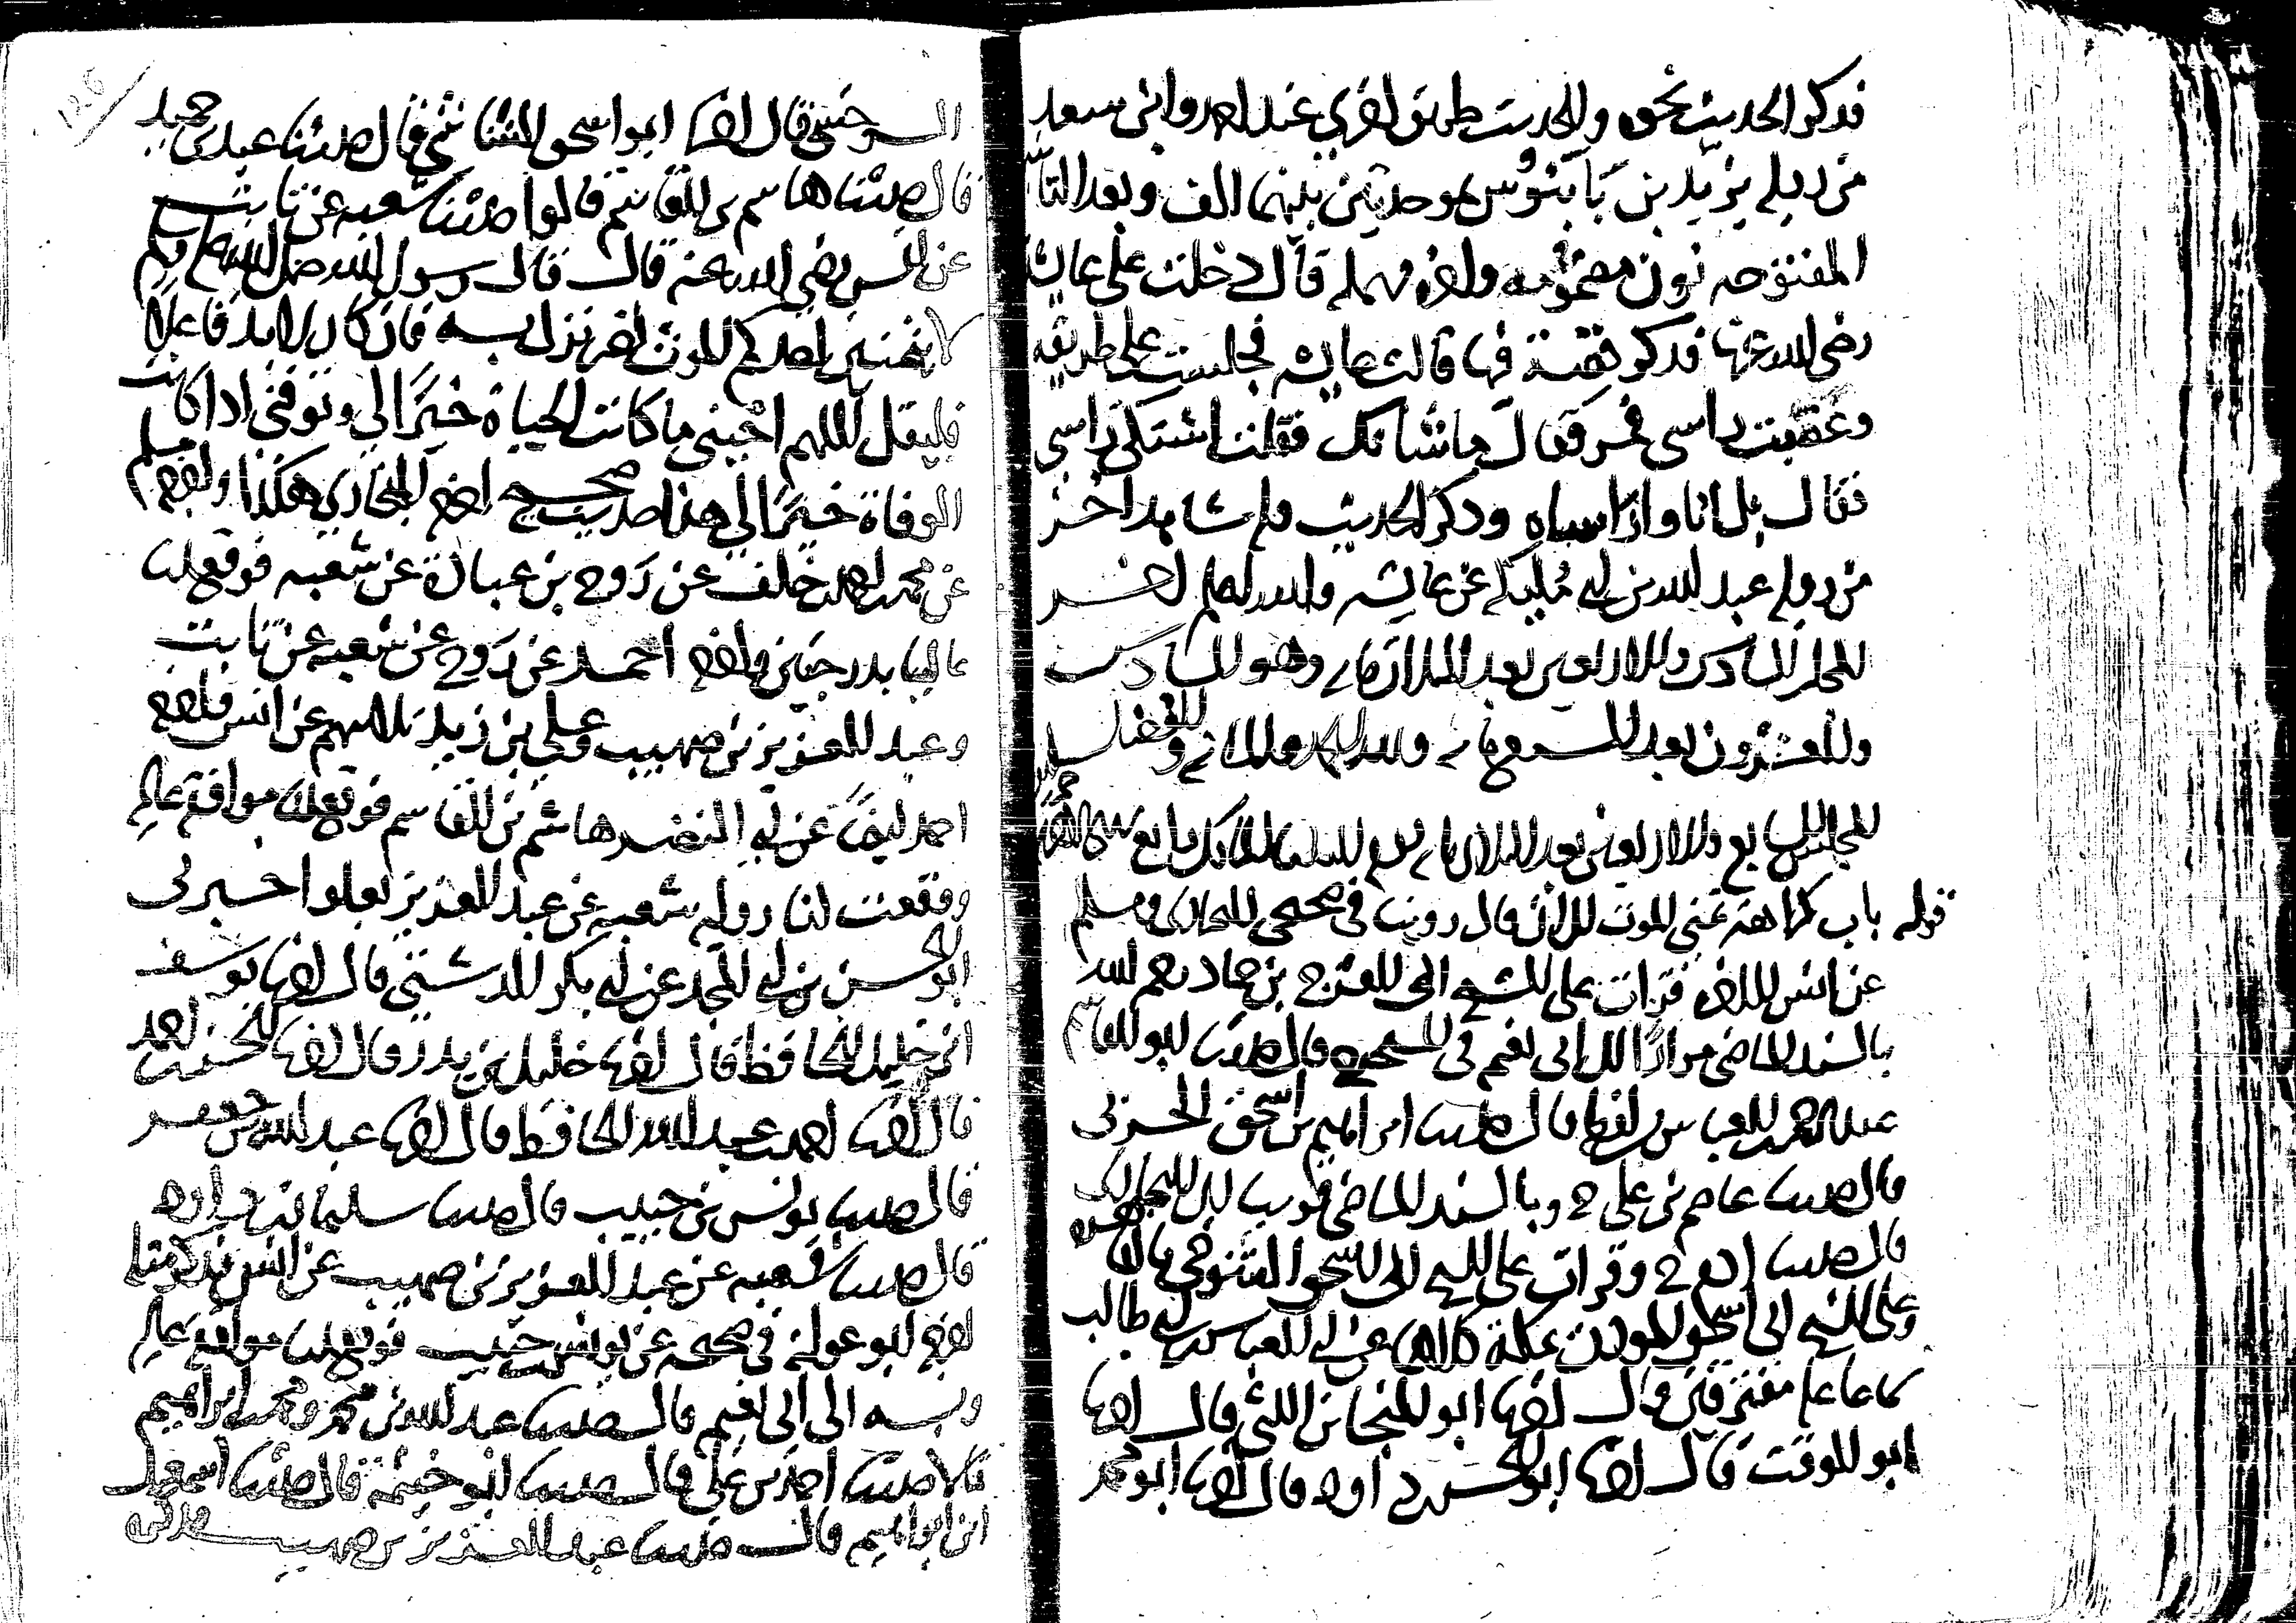 فذكر الحديث نحوه وللحديث طريق اخرى عند احمد وابن سعد
من رواية يزيد بن بابنوس بموحدتين بينهما الف وبعد الثا
المفتوحه نون مضمومه واخره مهملة قال دخلت على عايشة
رضي الله عنها فذكر قصة فيها قالت عايشه فجلست على طريقه
وعصبت راسي فمر فقال ما شانك فقلت اشتكي راسي
فقال بل انا وارأساه وذكر الحديث وله شاهد اخر
من رواية عبد الله بن ابي مليكة عن عايشه والله اعلم اخر
المجلس السادس والاربعين بعد الثلاثمائة وهو السادس
والعشرون بعد السبعمائة
المجلس السابع والاربعين بعد الثلاثمائة
قوله باب كراهة تمني الموت الى ان قال روينا في صحيحي البخاري ومسلم
عن انس الى اخره قرات على الشيخ ابي الفرج بن حماد رحمه الله
بالسند الماضي مرارا الى ابي نعيم في المستخرج قال حدثنا ابو القاسم
عبد الرحمن بن العباس لفظا قال حدثنا ابراهيم بن اسحق الحربي
قال حدثنا عاصم بن علي ح وبالسند الماضي قريبا الى البخاري
قال حدثنا ادم ح وقرات على الشيخ ابي اسحق التنوخي بالقاهرة
وعلى الشيخ ابي اسحق المؤذن بمكة كلاهما عن ابي العباس بن ابي طالب
سماعا عليه مفترقين قال اخبرنا ابو المنجا بن اللتي قال اخبرنا
ابو الوقت قال اخبرنا ابو الحسن بن داود قال اخبرنا ابو محمد
السرخسي قال اخبرنا ابو اسحق الشاشي قال حدثنا عبد بن حميد
قال حدثنا هاشم بن القاسم قالوا حدثنا شعبه عن ثابت
عن انس رضي الله عنه قال قال رسول الله صلى الله عليه وسلم
لا يتمنين احدكم الموت لضر نزل به فان كان لا بد فاعلا
فليقل اللهم احيني ما كانت الحياة خيرا لي وتوفني اذا كانت
الوفاة خيرا لي هذا حديث صحيح اخرجه البخاري هكذا واخرجه مسلم
عن محمد بن احمد بن خلف عن روح بن عبادة عن شعبه فوقع لنا
عاليا بدرجتين واخرجه احمد عن روح عن شعبه عن ثابت
وعبد العزيز بن صهيب وعلي بن زيد ثلاثتهم عن انس واخرجه
احمد ايضا عن ابي النضر هاشم بن القاسم فوقع لنا موافقة عالية
ووقعت لنا رواية شعبه عن عبد العزيز بعلو اخبرني
ابو الحسن بن ابي المجد عن ابي بكر الدشتي قال اخبرنا يوسف
ابن خليل الحافظ قال اخبرنا خليل بن بدر قال اخبرنا الحسن بن احمد
قال اخبرنا احمد بن عبد الله الحافظ قال اخبرنا عبد الله بن جعفر
قال حدثنا يونس بن حبيب قال حدثنا سليمان بن داود
قال حدثنا شعبه عن عبد العزيز بن صهيب عن انس فذكر مثله
اخرجه ابو عوانة في صحيحه عن يونس بن حبيب فوقع لنا موافقة عالية
وبه الى ابي نعيم قال حدثنا عبد الله بن محمد ومحمد بن ابراهيم
قالا حدثنا احمد بن علي قال حدثنا ابو خيثمة قال حدثنا اسمعيل
ابن ابراهيم قال حدثنا عبد العزيز بن صهيب